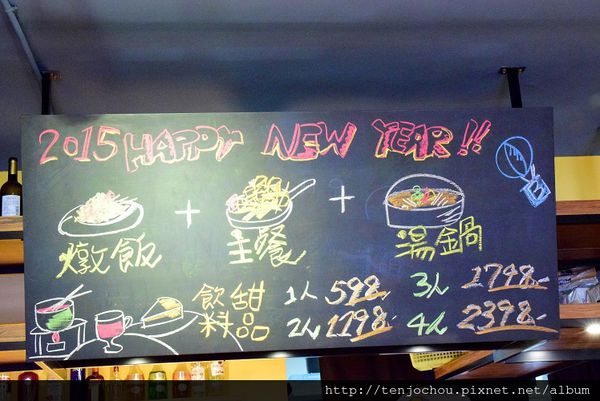 2015 HAPPY NEW YEAR!!
燉飯 + 主餐 + 湯鍋
飲料 甜品
1人 598.- 3人 1748.-
2人 1198.- 4人 2398.-
http://tenjochou.pixnet.net/album